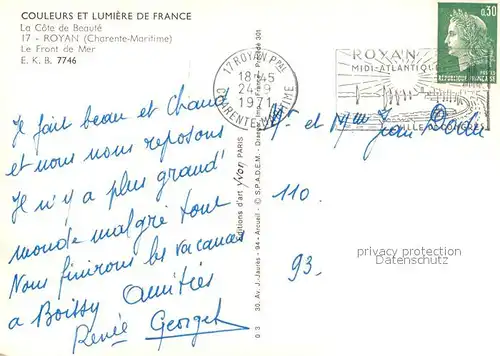 COULEURS ET LUMIÈRE DE FRANCE
La Côte de Beauté
17 - ROYAN (Charente-Maritime)
Le Front de Mer
E. K. B. 7746
Je fait beau et chaud
et nous nous reposons
Je n'y a plus grand'
monde malgré tout
Nous finirons les vacances
a Boissy Amitiés
Renée Georget
Editions d'art Yvon PARIS
0 3 30, Av. J.-Jaurès - 94 - Arcueil - © S.P.A.D.E.M. - Dépôt
301
17 ROYAN Pal
18H45
24-9
1971
CHARENTE-MARITIME
ROYAN
MIDI-ATLANTIQUE
0,30
REPUBLIQUE FRANÇAISE
POSTES
Mr et Mme Jean
110.
93.
privacy protection
Datenschutz